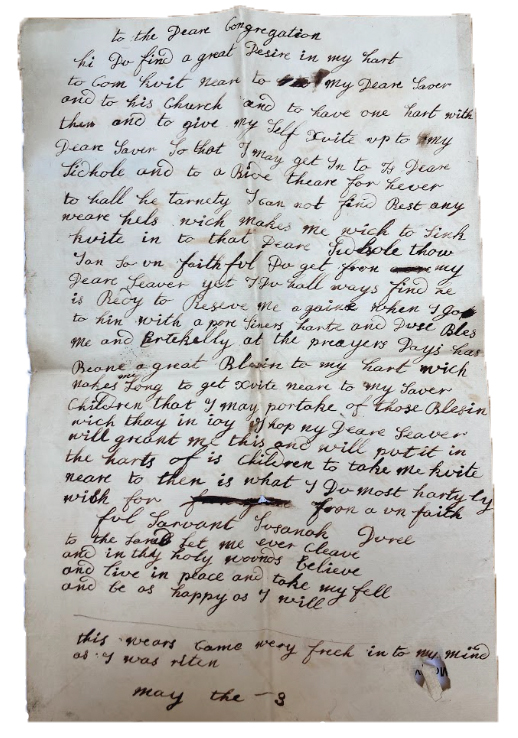 to the Deare Congregation
hi Do find a great Desire in my hart
to Com kvit neare to my Deare Saver
and to his Church and to have one hart with
them and to give my Self Xvite vp to my
Deare Saver So that I may get In to Is Deare
Sidhole and to a Bive theare for hever
to hall he tarnety I can not find Rest any
weare hels wich makes me wich to Sink
kvite in to that Deare Sidhole thow
I an So vn faithfvl Do get fron my
Deare Seaver yet I Do hall ways find he
is Redy to Reseve me againe when I go
to him with a pore Siners harte and Dvse Bles
me and Pertekelly at the preayers Days has
Beane a great Blesin to my hart wich
makes me Long to get Xvite neare to my Saver
Children that I may partake of those Blesin
wich thay in ioy I hop my Deare Seaver
will greant me this and will pvt it in
the harts of is Children to take me kvite
neare to then is what I Do most harty ly
wich for fron a vn faith
fvl Sarvant Svsanah Dvree
to the Lamb Let me ever Cleave
and in thy holy wovnds believe
and live in peace and take my fell
and be as happy as I will
this wears Came wery frech in to my mind
as I was riten
may the 3